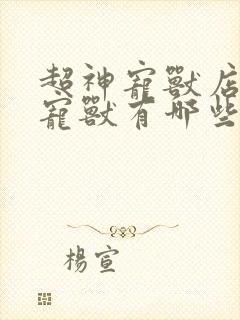 超神寵獸店
寵獸有哪些
楊宣